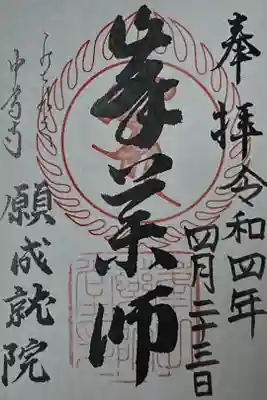 奉拝
令和四年
四月二十三日
峯薬師
中尊寺
願成就院